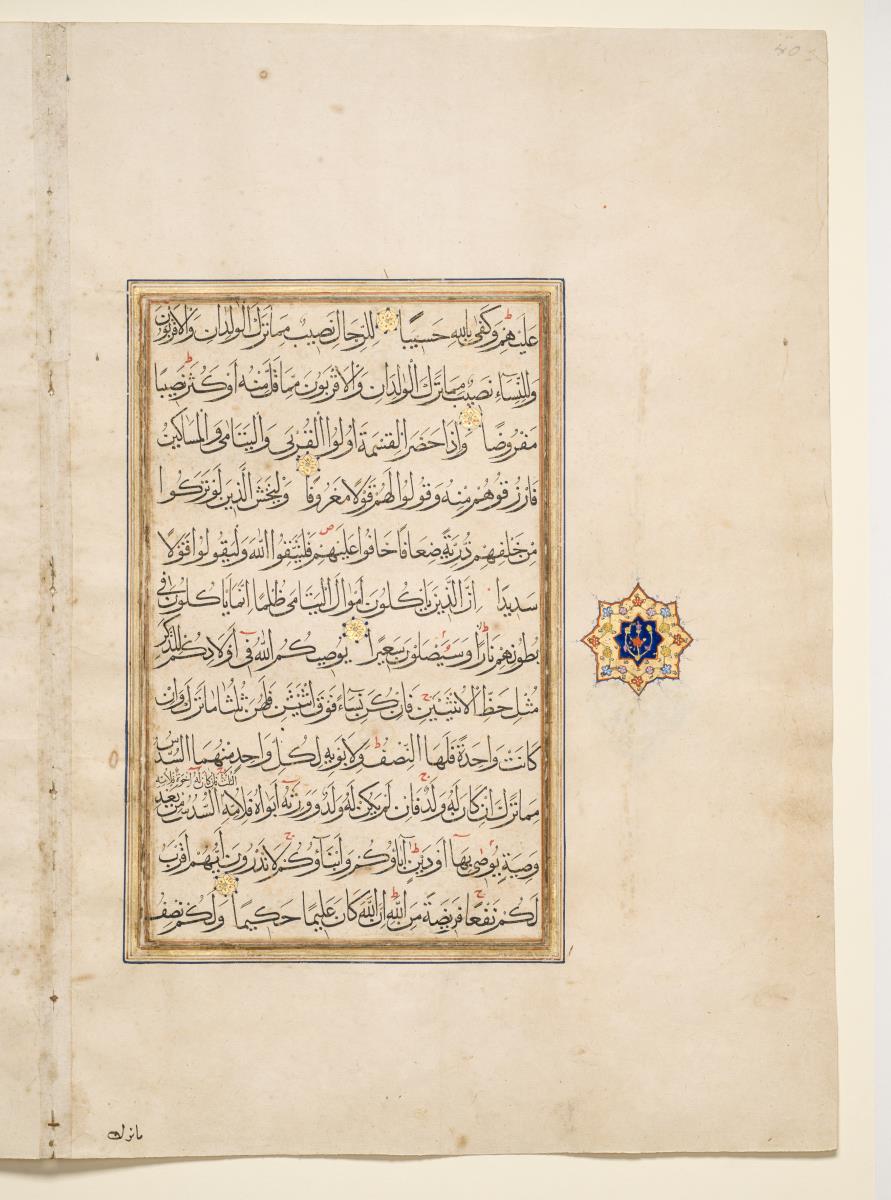 عَلَيْهِمْ وَكَفَى بِاللَّهِ حَسِيبًا لِلرِّجَالِ نَصِيبٌ مِمَّا تَرَكَ الْوَلِدَانِ وَالْأَقْرَبُونَ
وَلِلنِّسَاءِ نَصِيبٌ مِمَّا تَرَكَ الْوَلِدَانِ وَالْأَقْرَبُونَ مِمَّا قَلَّ مِنْهُ أَوْ كَثُرَ نَصِيبًا
مَفْرُوضًا وَإِذَا حَضَرَ الْقِسْمَةَ أُولُوا الْقُرْبَى وَالْيَتَامَى وَالْمَسَاكِينُ
فَارْزُقُوهُمْ مِنْهُ وَقُولُوا لَهُمْ قَوْلًا مَعْرُوفًا وَلْيَخْشَ الَّذِينَ لَوْ تَرَكُوا
مِنْ خَلْفِهِمْ ذُرِّيَّةً ضِعَافًا خَافُوا عَلَيْهِمْ فَلْيَتَّقُوا اللَّهَ وَلْيَقُولُوا قَوْلًا
سَدِيدًا إِنَّ الَّذِينَ يَأْكُلُونَ أَمْوَالَ الْيَتَامَى ظُلْمًا إِنَّمَا يَأْكُلُونَ فِي
بُطُونِهِمْ نَارًا وَسَيَصْلَوْنَ سَعِيرًا يُوصِيكُمُ اللَّهُ فِي أَوْلَادِكُمْ لِلذَّكَرِ
مِثْلُ حَظِّ الْأُنْثَيَيْنِ فَإِنْ كُنَّ نِسَاءً فَوْقَ اثْنَتَيْنِ فَلَهُنَّ ثُلُثَا مَا تَرَكَ وَإِنْ
كَانَتْ وَاحِدَةً فَلَهَا النِّصْفُ وَلِأَبَوَيْهِ لِكُلِّ وَاحِدٍ مِنْهُمَا السُّدُسُ
الثُّلُثُ فَإِنْ كَانَ لَهُ إِخْوَةٌ فَلِأُمِّهِ
مِمَّا تَرَكَ إِنْ كَانَ لَهُ وَلَدٌ فَإِنْ لَمْ يَكُنْ لَهُ وَلَدٌ وَوَرِثَهُ أَبَوَاهُ فَلِأُمِّهِ السُّدُسُ مِنْ بَعْدِ
وَصِيَّةٍ يُوصِي بِهَا أَوْ دَيْنٍ آبَاؤُكُمْ وَأَبْنَاؤُكُمْ لَا تَدْرُونَ أَيُّهُمْ أَقْرَبُ
لَكُمْ نَفْعًا فَرِيضَةً مِنَ اللَّهِ إِنَّ اللَّهَ كَانَ عَلِيمًا حَكِيمًا وَلَكُمْ نِصْفُ
ماترك